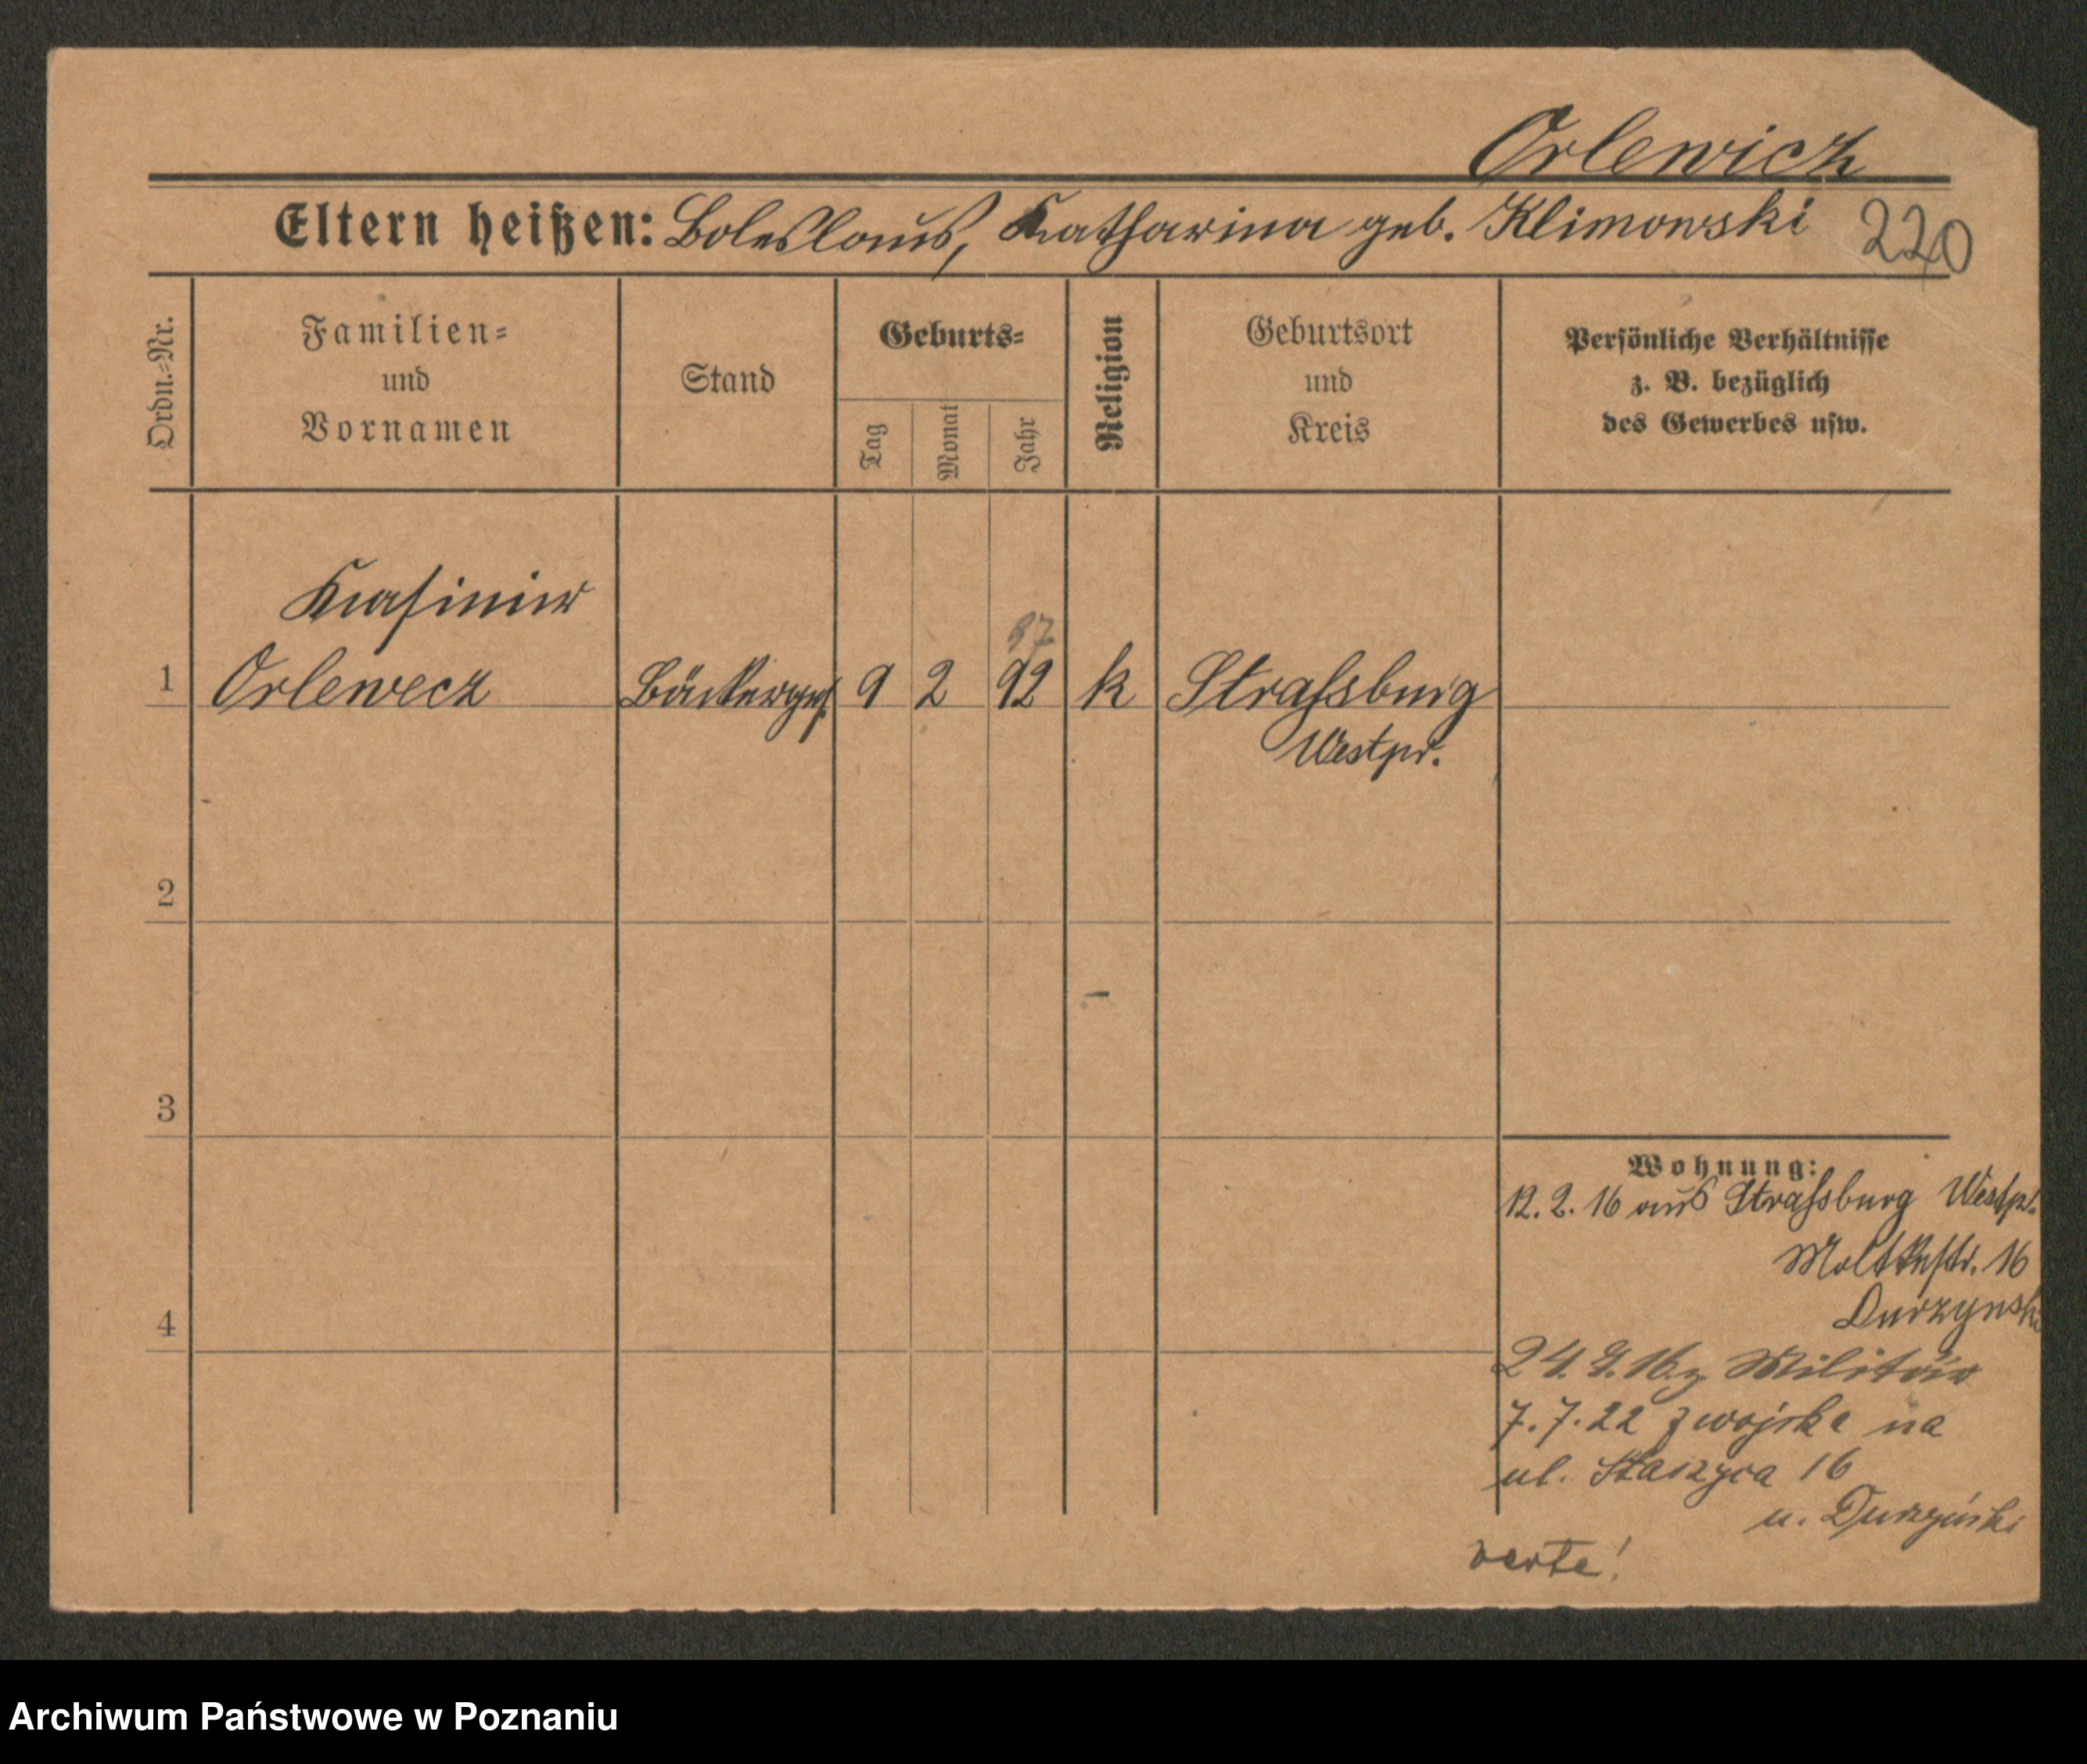 Orlewicz
Eltern heißen: Boleslaus, Katharina geb. Klimowski 220
Ordn.-Nr.
Familien-
und
Vornamen
Stand
Geburts-
Tag
Monat
Jahr
Religion
Geburtsort
und
Kreis
Persönliche Verhältnisse
z. B. bezüglich
des Gewerbes usw.
Kasimir
97
1 Orlewicz Bäckerges. 9 2 92 k Strassburg
Westpr.
2
3
4
Wohnung:
12. 2. 16 aus Strassburg Westpr.
Moltkestr. 16
Durzynski
24. 9. 16 z Militär
7. 7. 22 z wojska na
ul. Staszyca 16
u. Durzyński
verte!
Archiwum Państwowe w Poznaniu